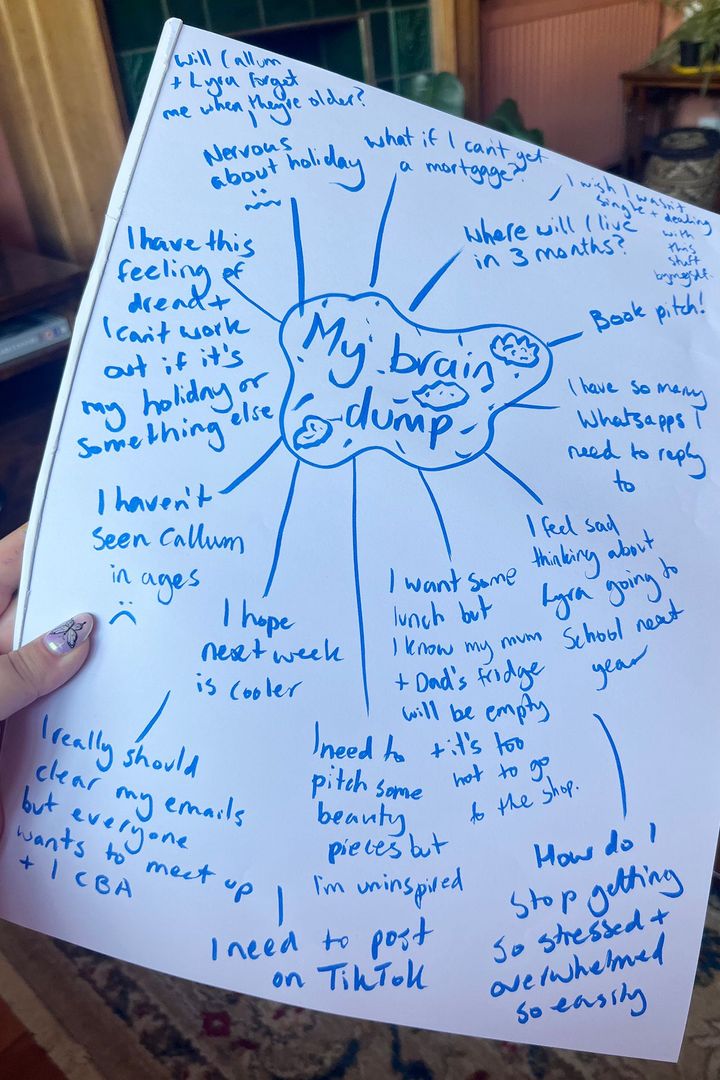 will Callum
+ Lyra forget
me when they're older?
Nervous
about holiday
what if I can't get
a mortgage?
I wish I wasn't
single + dealing
with
this
stuff
by myself.
Where will I live
in 3 months?
Book pitch!
I have this
feeling of
dread +
I can't work
out if it's
my holiday or
something else
My brain
dump
I have so many
Whatsapps I
need to reply
to
I haven't
seen Callum
in ages
I hope
next week
is cooler
I want some
lunch but
I know my mum
+ Dad's fridge
will be empty
+ it's too
hot to go
to the shop.
I feel sad
thinking about
Lyra going to
School next
year
I really should
clear my emails
but everyone
wants to meet up
+ I CBA
I need to
pitch some
beauty
pieces but
I'm uninspired
I need to post
on TikTok
How do I
stop getting
so stressed +
overwhelmed
so easily